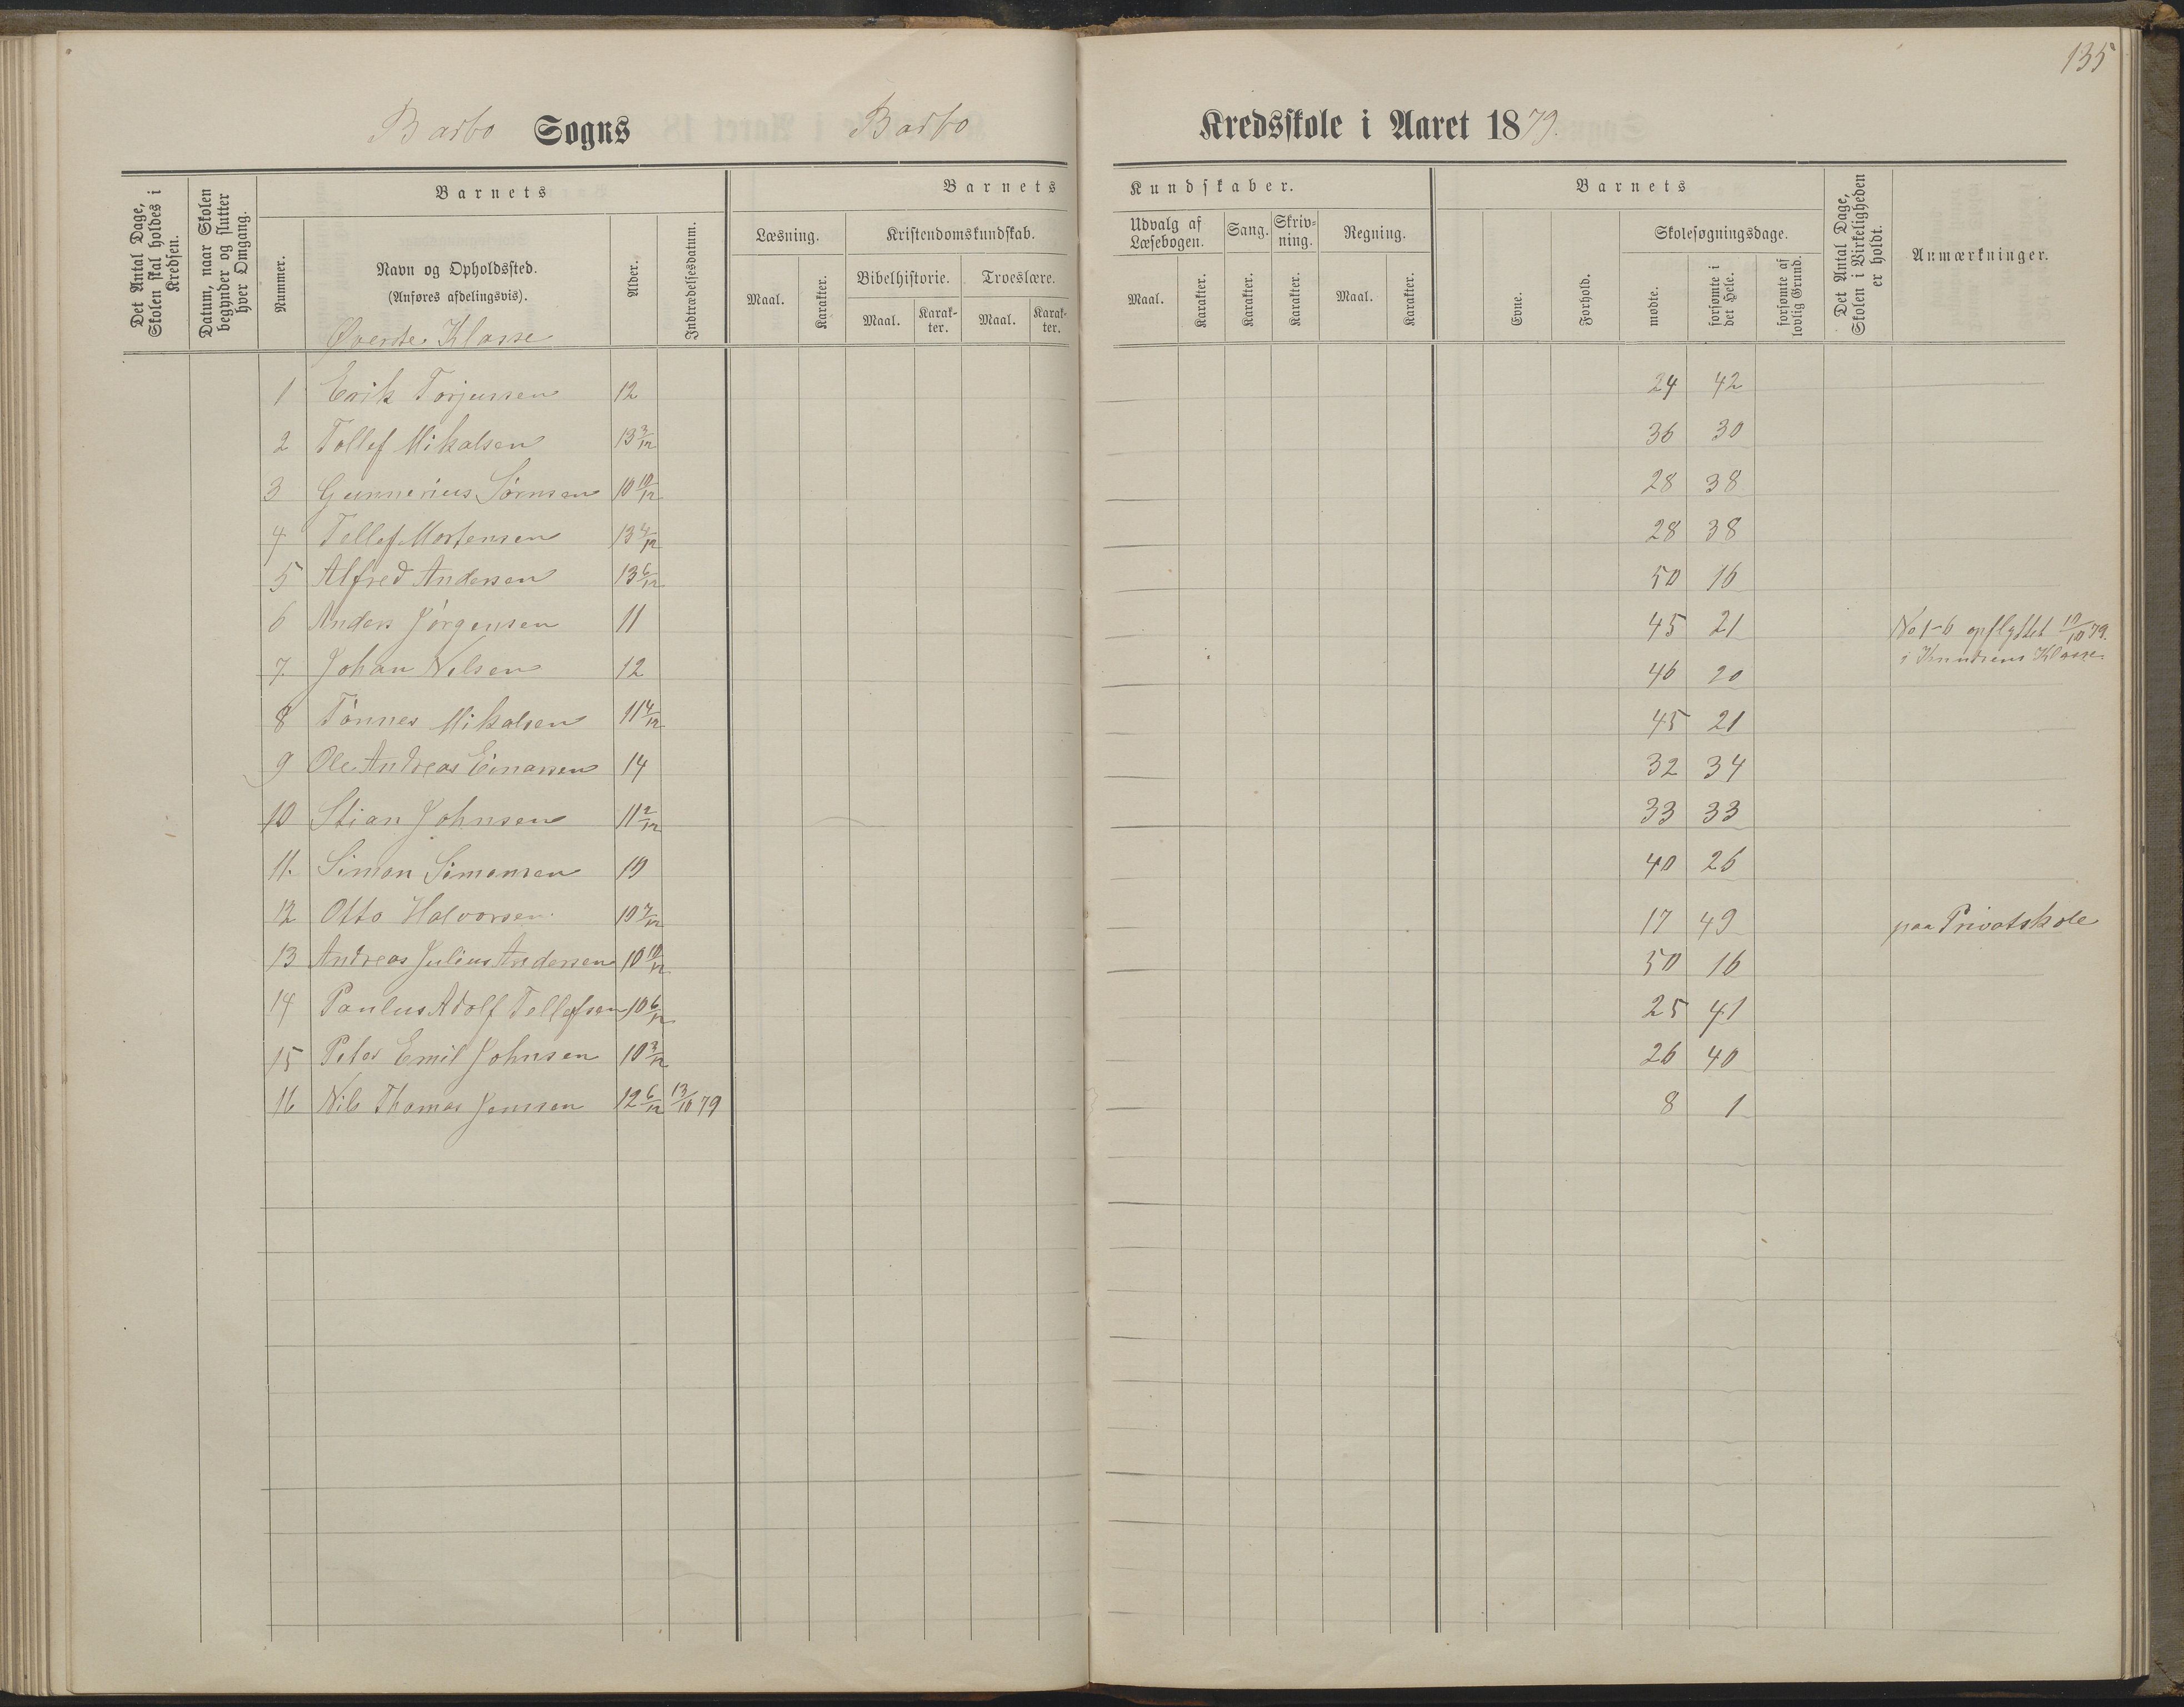 135
Barbo Sogns Barbo Kredsskole i Aaret 1879.
Det Antal Dage, Skolen skal holdes i Kredsen.
Datum, naar Skolen begynder og slutter hver Omgang.
Barnets
Nummer.
Navn og Opholdssted.
(Anføres afdelingsvis).
Øverste Klasse
Alder.
Indtrædelsesdatum.
Barnets Kundskaber.
Læsning.
Maal.
Karakter.
Kristendomskundskab.
Bibelhistorie.
Maal.
Karakter.
Troeslære.
Maal.
Karakter.
Udvalg af Læsebogen.
Maal.
Karakter.
Sang.
Karakter.
Skrivning.
Karakter.
Regning.
Maal.
Karakter.
Barnets
Evne.
Forhold.
Skolesøgningsdage.
mødte.
forsømte i det Hele.
forsømte af lovlig Grund.
Det Antal Dage, Skolen i Virkeligheden er holdt.
Anmærkninger.
1 Erik Torjussen 12 24 42
2 Tollef Mikalsen 13 3/12 36 30
3 Gunnerius Sørnsen 10 10/12 28 38
4 Tellef Mortensen 13 4/12 28 38
5 Alfred Andersen 13 6/12 50 16
6 Anders Jørgensen 11 45 21 No 1-6 opflyttet 10/10 79.
i Knudsens Klasse.
7. Johan Nilsen 12 46 20
8 Tønnes Mikalsen 11 4/12 45 21
9 Ole Andreas Einarsen 14 32 34
10 Stian Johnsen 11 2/12 33 33
11. Simon Simonsen 10 40 26
12 Otto Halvorsen. 10 7/12 17 49 paa Privatskole
13 Andreas Julius Andersen 10 10/12 50 16
14 Paulus Adolf Tellefsen 10 6/12 25 41
15 Peter Emil Johnsen 10 3/12 26 40
16 Nils Thomas Jenssen 12 6/12 13/10 79 8 1